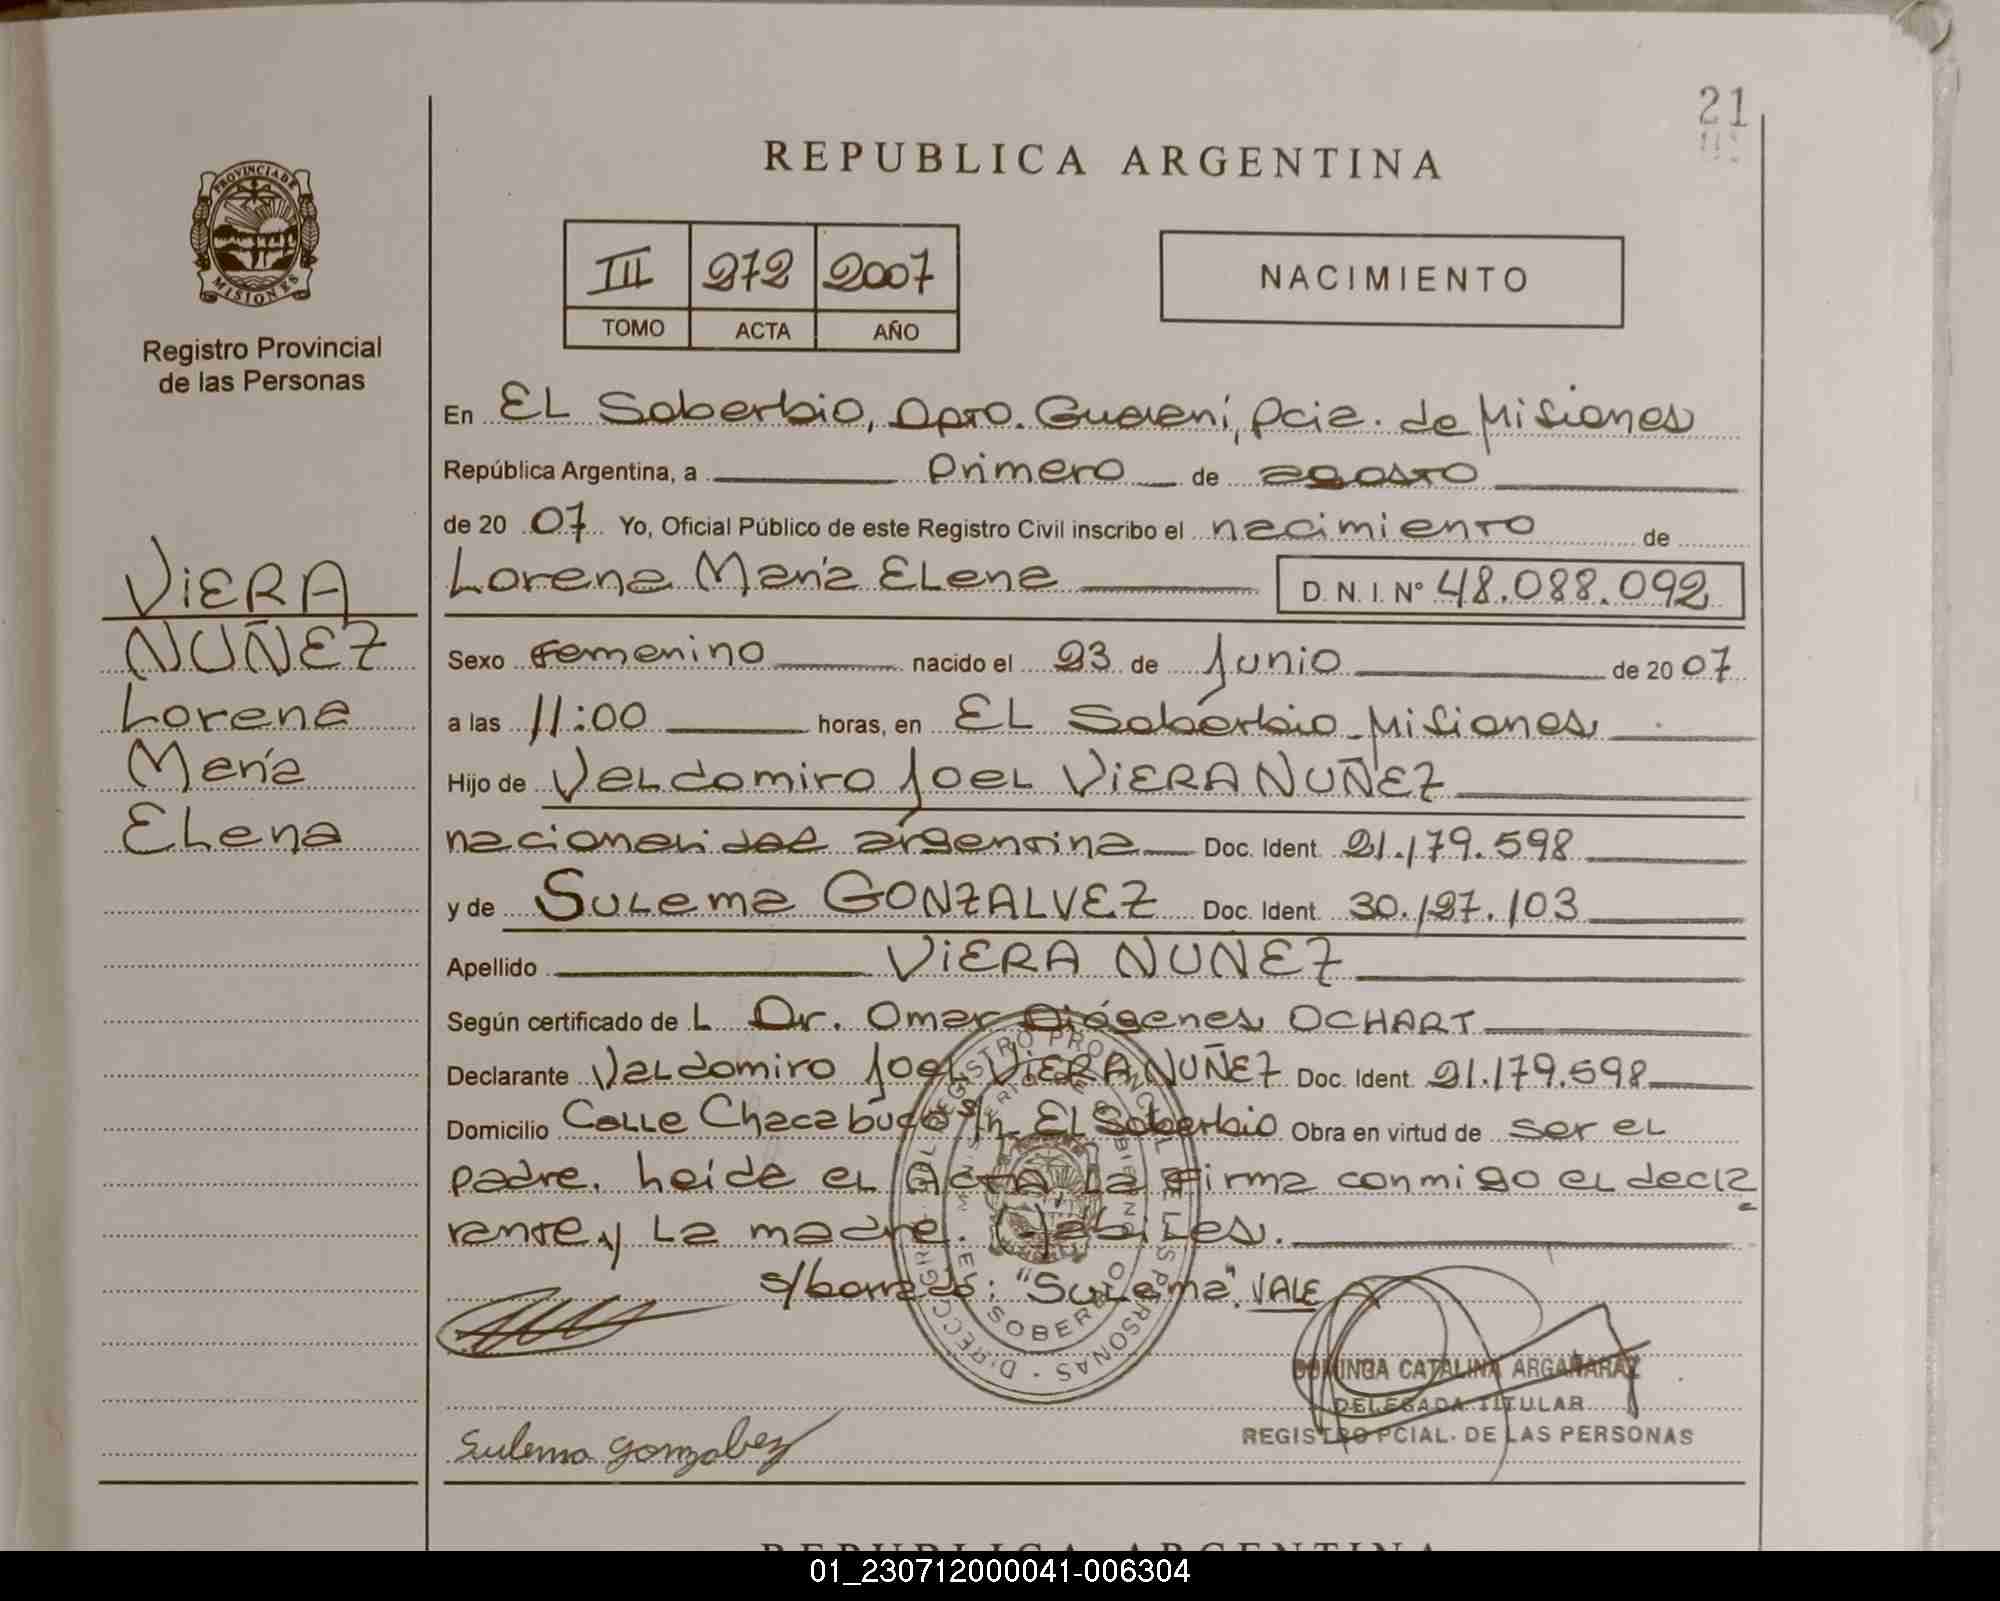 21
REPUBLICA ARGENTINA
PROVINCIA DE
MISIONES
Registro Provincial
de las Personas
III 272 2007
TOMO ACTA AÑO
NACIMIENTO
VIERA
NUÑEZ
Lorena
María
Elena
En EL Soberbio, Dpto. Guaraní, Pcia. de Misiones
República Argentina, a primero de agosto
de 20 07 Yo, Oficial Público de este Registro Civil inscribo el nacimiento de
Lorena María Elena D. N. I. Nº 48.088.092
Sexo femenino nacido el 23 de Junio de 20 07
a las 11:00 horas, en EL Soberbio-Misiones
Hijo de Valdomiro Joel VIERA NUÑEZ
nacionalidad argentina Doc. Ident. 21.179.598
y de Sulema GONZALVEZ Doc. Ident. 30.127.103
Apellido VIERA NUÑEZ
Según certificado de L Dr. Omar Diógenes OCHART
Declarante Valdomiro Joel VIERA NUÑEZ Doc. Ident. 21.179.598
Domicilio Calle Chacabuco s/n- El Soberbio Obra en virtud de ser el
padre. heída el Acta La Firma conmigo el decla
rante y La madre. Hábiles.
s/borrado: "Sulema". VALE
DIRECCION GRAL REGISTRO PROVINCIAL DE LAS PERSONAS
MINISTERIO DE GOBIERNO
EL SOBERBIO
DOMINGA CATALINA ARGAÑARAZ
DELEGADA TITULAR
REGISTRO PCIAL. DE LAS PERSONAS
Sulema gonzalvez
REPUBLICA ARGENTINA
01_230712000041-006304